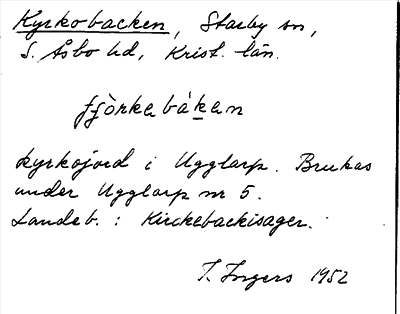 Kyrkobacken, Starby sn,
S. Åsbo hd, Krist. län.
fjòrkabákan
Kyrkojord i Ugglarp. Brukas
under Ugglarp nr 5.
Landeb. : Kirckebackisager.
T. Ingers 1952